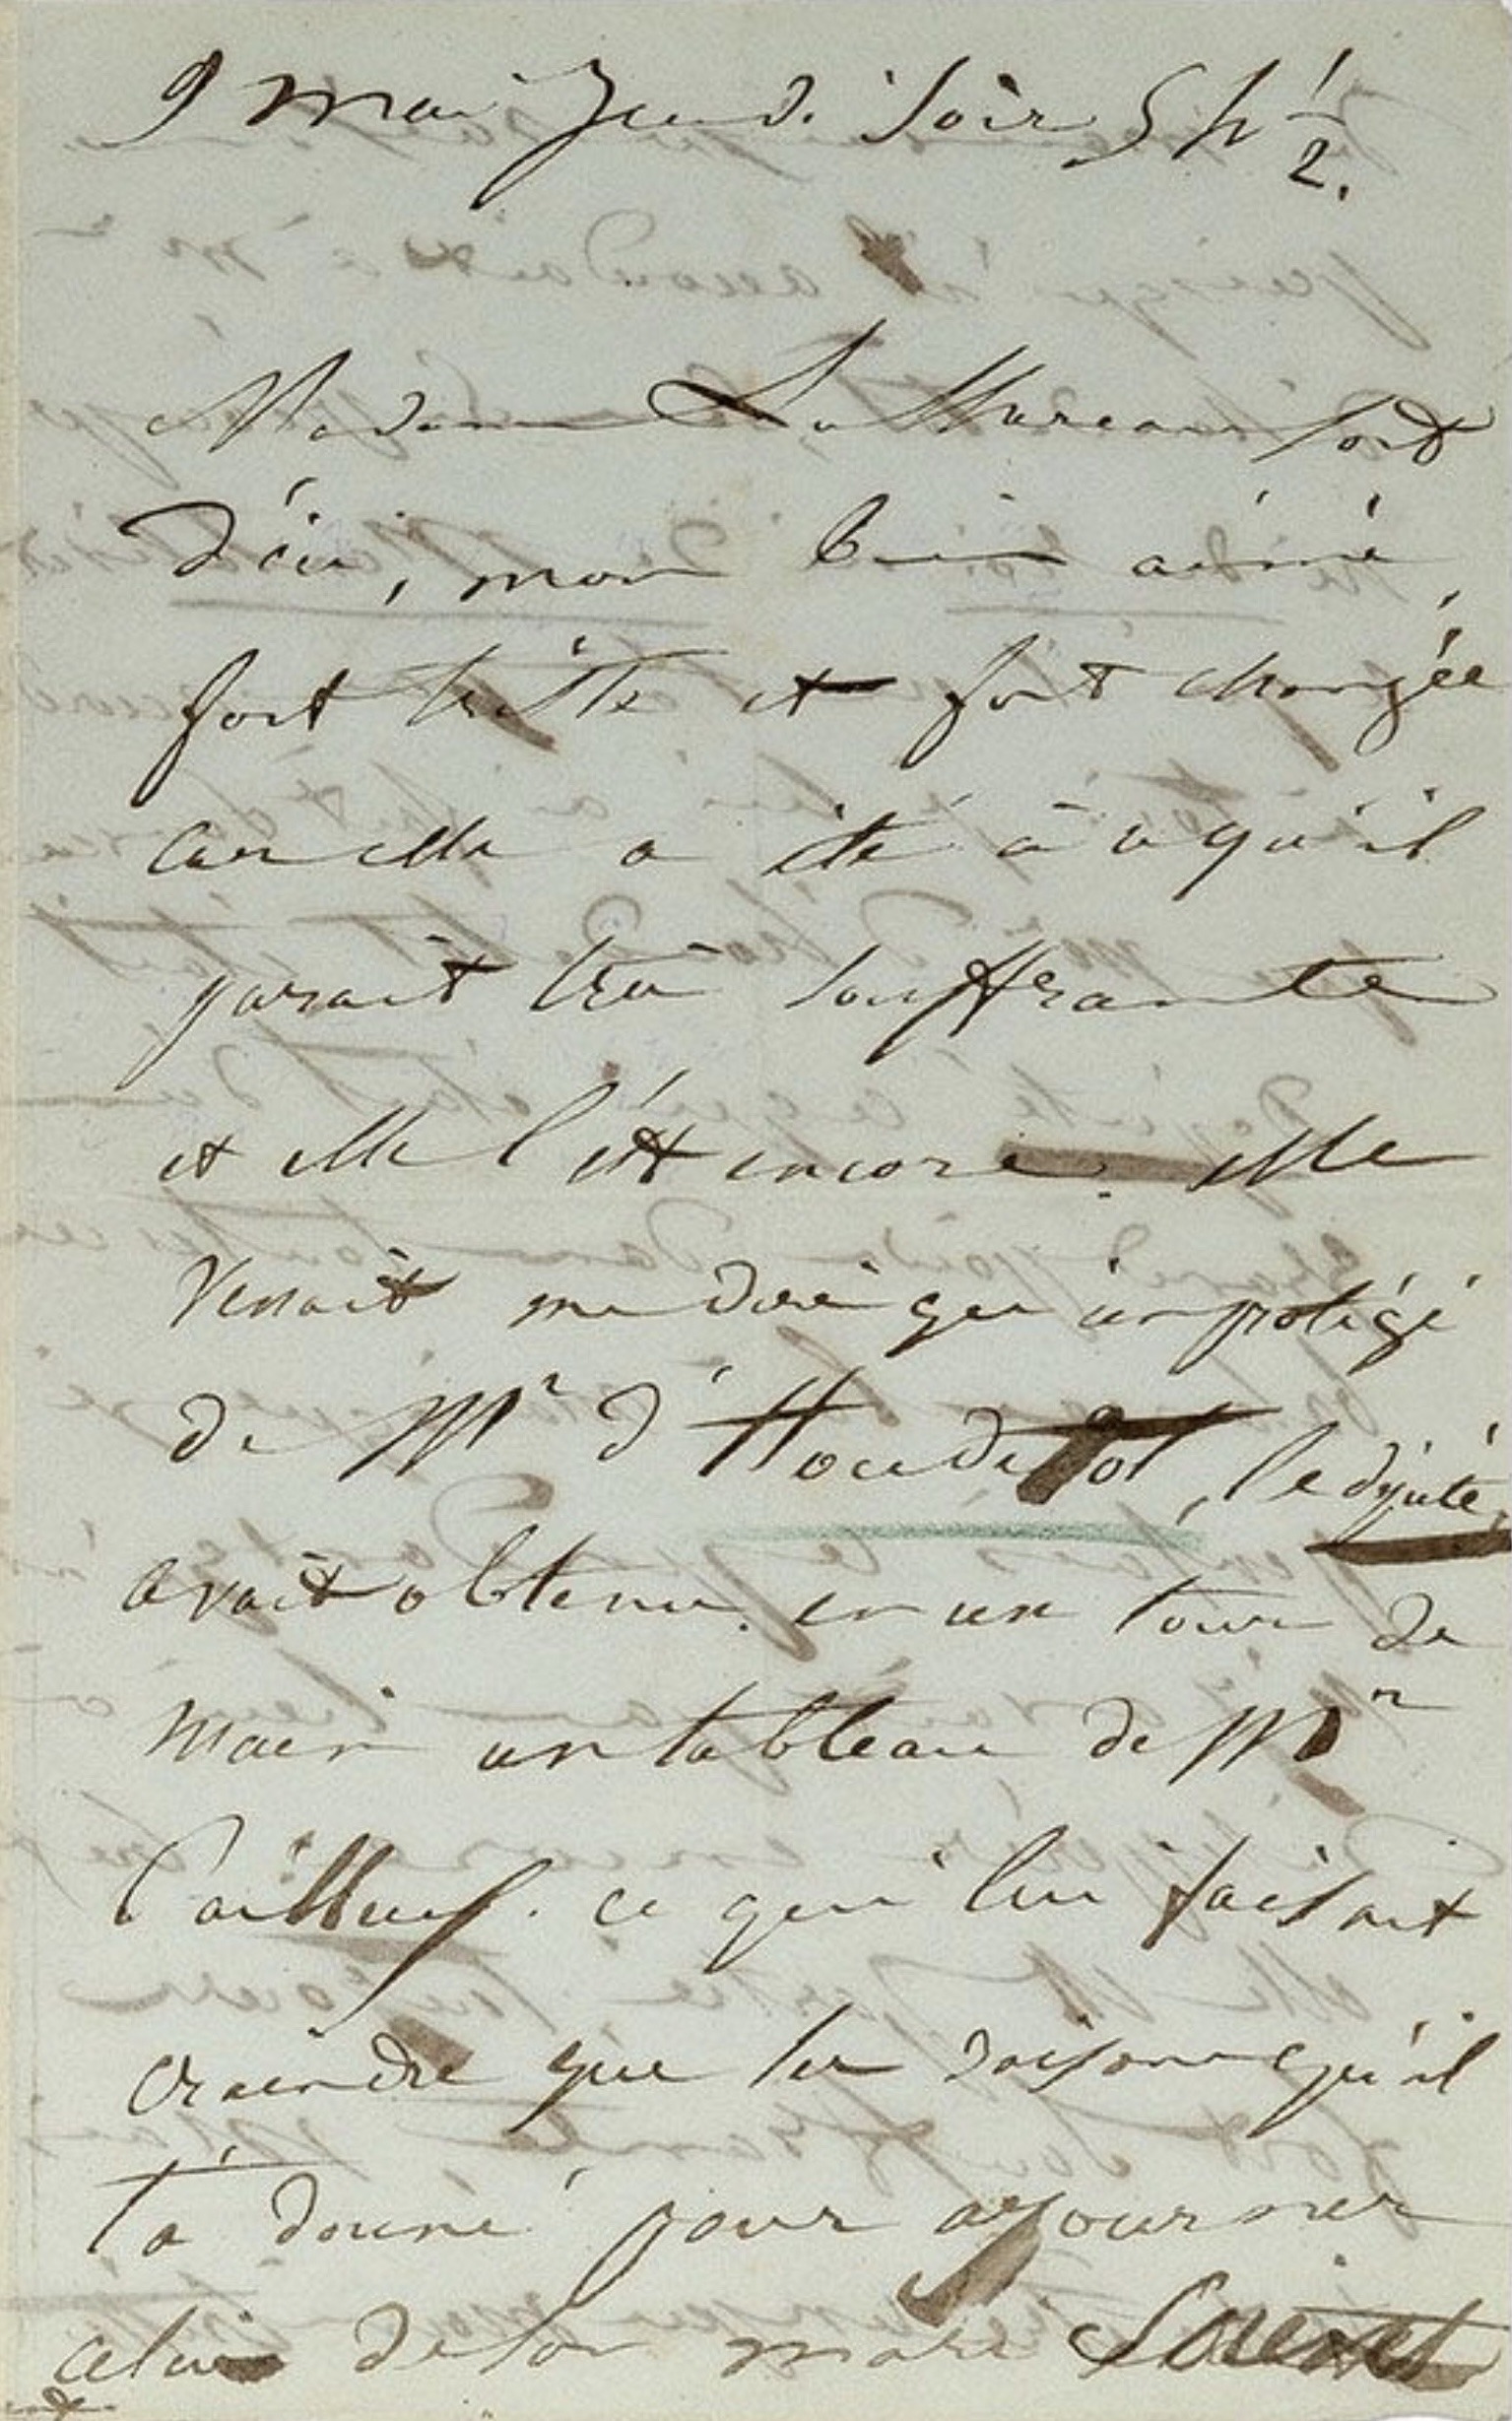 9 mai Jeudi soir 5 h ½.
Madame Luthereau sort
d'ici, mon bien aimé,
fort triste et fort changée
car elle a été à ce qu'il
parait très souffrante
et elle l'est encore. Elle
venait me dire qu'un protégé
de Mr d'Houdetot, le député,
avait obtenu en un tour de
main un tableau de Mr
Cailleux. ce qui lui faisait
craindre que les raisons qu'il
t'a donné pour ajourner
celui de son mari